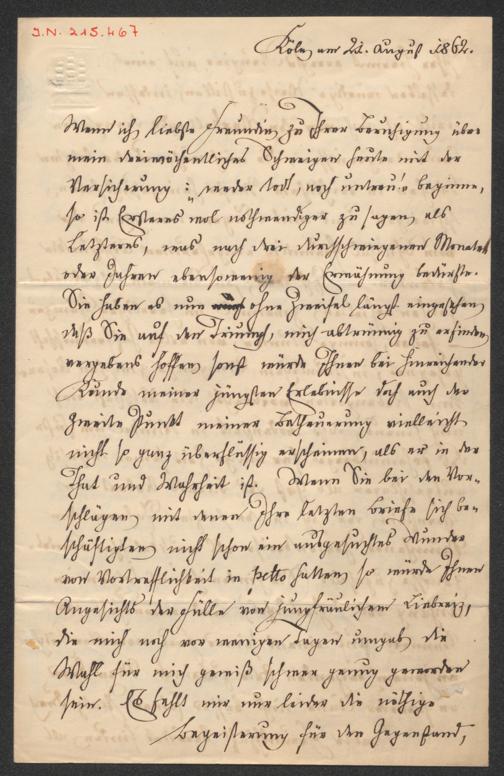 J.N. 215.467
Köln am 21. August 1862.
Wenn ich, liebste Freundin, zu Ihrer Beruhigung über
mein dreiwöchentliches Schweigen heute mit der
Versicherung: „weder todt, noch untreu“ beginne,
so ist Ersteres wol nothwendiger zu sagen, als
Letzteres, was nach drei durchschwiegenen Monaten
oder Jahren ebensowenig der Erwähnung bedürfte.
Sie haben es nun ohne Zweifel längst eingesehen,
daß Sie auf den Triumph, mich abtrünnig zu erfinden
vergebens hoffen, sonst würde Ihnen bei hinreichender
Kunde meiner jüngsten Erlebnisse doch auch der
zweite Punkt meiner Betheuerung vielleicht
nicht so ganz überflüssig erscheinen, als er in der
That und Wahrheit ist. Wenn Sie bei den Vor-
schlägen, mit denen Ihre letzten Briefe sich be-
schäftigten, nicht schon ein ausgesuchtes Wunder
von Vortrefflichkeit in petto hatten, so würde Ihnen
Angesichts der Fülle von jungfräulichem Liebreiz,
die mich noch vor wenigen Tagen umgab, die
Wahl für mich gewiß schwer genug geworden
sein. Es fehlt mir nur leider die nöthige
Begeisterung für den Gegenstand,